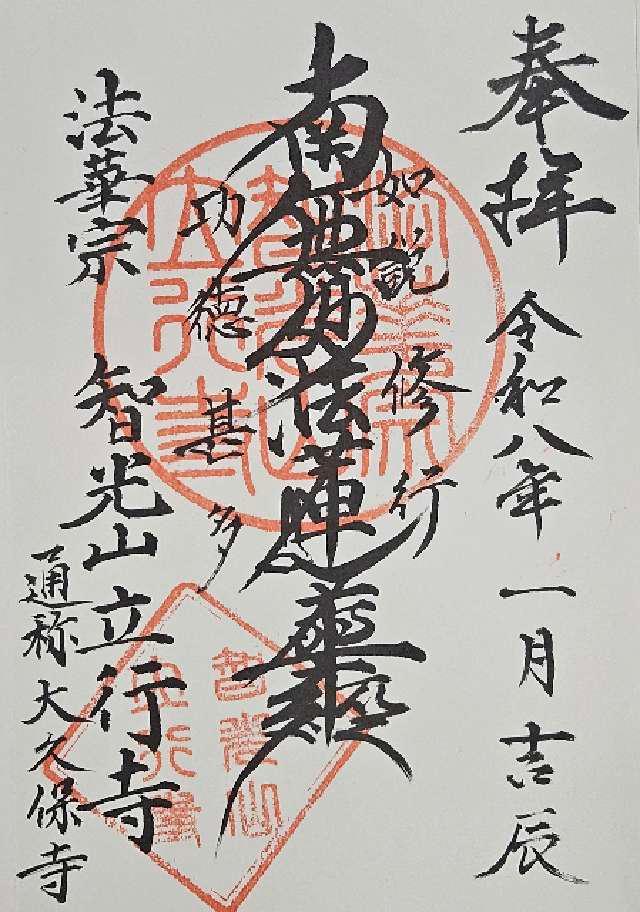 奉拝
令和八年一月吉辰
如説修行
南無妙法蓮華経
功徳甚多
法華宗
智光山立行寺
通称大久保寺